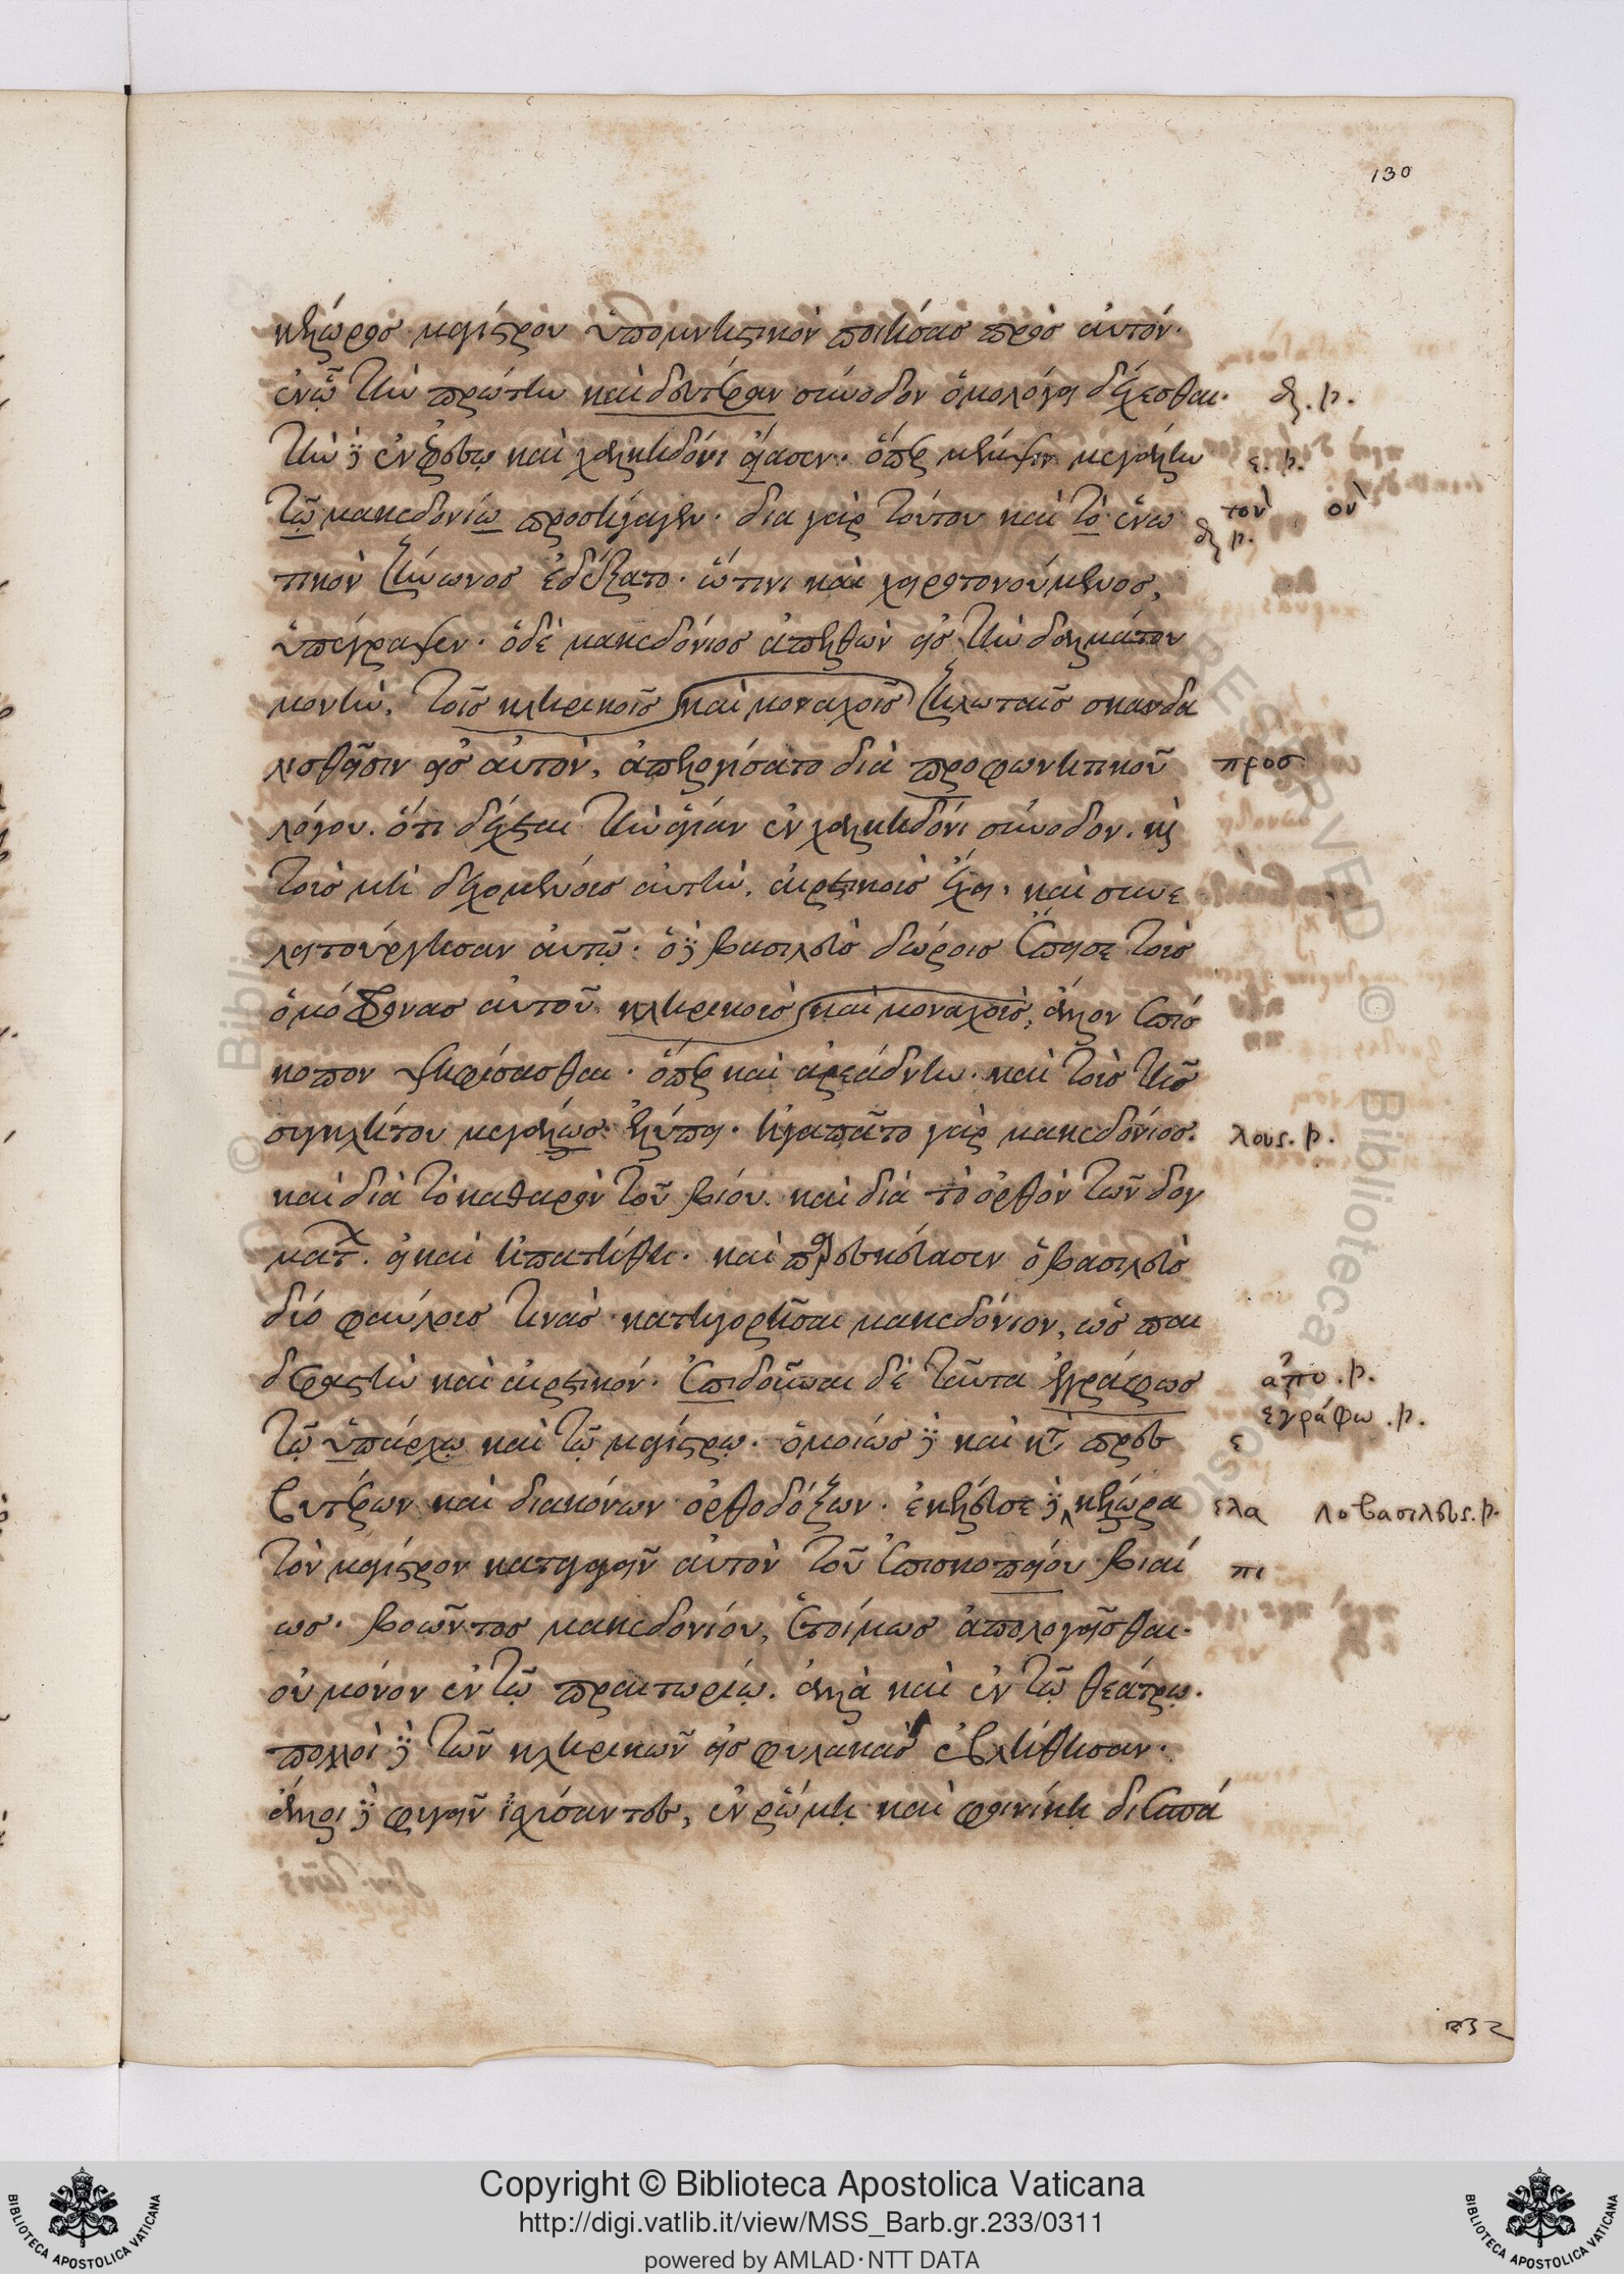 130
κέλωρος μαγίστρου ὑπομνηστικὸν ποιήσας πρὸς αὐτόν·
ἐν ᾧ τὴν πρώτην καὶ δευτέραν σύνοδον ὁμολόγει δέχεσθαι· δη. p.
τὴν δὲ ἐν ἐφέσῳ καὶ χαλκηδόνι εἴασεν· ὅπερ μέμψιν μεγάλην ε. p.
τῷ μακεδονίῳ προσήγαγεν· δια γὰρ τούτου καὶ τὸ ἑνω τον ον
δη p.
τικὸν ζήνωνος ἐδέξατο· ᾧτινι καὶ χειροτονούμενος,
ὑπέγραψεν· ὁ δὲ μακεδόνιος ἀπελθὼν εἰς τὴν δαλμάτου
μονὴν, τοῖς κληρικοῖς καὶ μοναχοῖς ζηλωταῖς σκανδα
λισθεῖσιν εἰς αὐτὸν, ἀπελογήσατο διὰ προσφωνητικοῦ προσ
λόγου. ὅτι δέχεται τὴν ἁγίαν ἐν χαλκηδόνι σύνοδον. καὶ
τοὺς μὴ δεχομένους αὐτὴν, αἱρετικοὺς ἔχει. καὶ συνε
λειτούργησαν αὐτῷ· ὁ δὲ βασιλεὺς δώροις ἔπεισε τοὺς
ὁμόφρονας αὐτοῦ κληρικοὺς καὶ μοναχοὺς, ἄλλον ἐπίσ
κοπον ψηφίσασθαι· ὅπερ καὶ ἀρεάδνην καὶ τοὺς τῆς
συγκλήτου μεγάλως ἐλύπει· ἠγαπᾶτο γὰρ μακεδόνιος. λους. p.
καὶ διὰ τὸ καθαρὸν τοῦ βίου. καὶ διὰ τὸ ὀρθὸν τῶν δογ
ματ. εἰ καὶ ἠπατήθη· καὶ παρεσκεύασεν ὁ βασιλεὺς
διὸ φαύλους τινὰς κατηγορῆσαι μακεδόνιον, ὡς παι
δεραστὴν καὶ αἱρετικόν· ἐπιδοῦναι δὲ ταῦτα ἐγγράφως απο. p.
εγράφω. p.
τῷ ὑπάρχῳ καὶ τῷ μαγίστρῳ· ὁμοίως δὲ καὶ κατὰ πρεσ ε
βυτέρων καὶ διακόνων ὀρθοδόξων· ἐκέλευσε δὲ κέλωρα ελα λο βασιλευς. p.
τὸν μάγιστρον καταγαγεῖν αὐτὸν τοῦ ἐπισκοπείου βιαί πι
ως· βοῶντος μακεδονίου, ἑτοίμως ἀπολογεῖσθαι·
οὐ μόνον ἐν τῷ πραιτωρίῳ. ἀλλὰ καὶ ἐν τῷ θεάτρῳ.
πολλοὶ δὲ τῶν κληρικῶν εἰς φυλακὰς ἐβλήθησαν·
ἄλλοι δὲ φυγεῖν ἰσχύσαντες, ἐν ῥώμῃ καὶ φοινίκῃ διεσπά
Copyright © Biblioteca Apostolica Vaticana
http://digi.vatlib.it/view/MSS_Barb.gr.233/0311
powered by AMLAD·NTT DATA
BIBLIOTECA APOSTOLICA VATICANA
BIBLIOTECA APOSTOLICA VATICANA